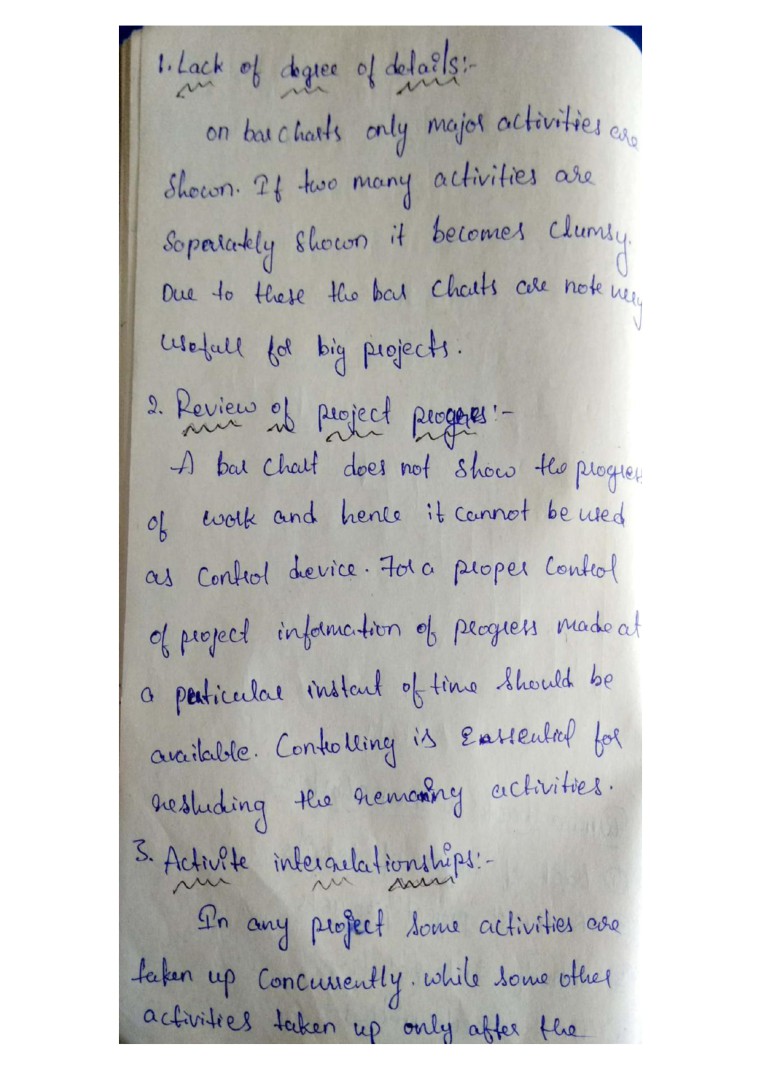 1. Lack of degree of details:-
on bar charts only major activities are
shown. If two many activities are
Soperately shown it becomes clumsy.
Due to these the bar charts are note very
usefull for big projects.
2. Review of project progress:-
A bar chart does not show the progress
of work and hence it cannot be used
as control device. For a proper control
of project information of progress made at
a particular instant of time should be
available. Controlling is Enssential for
resluding the remaning activities.
3. Activite interrelationships:-
In any project some activities are
taken up concurrently. while some other
activities taken up only after the